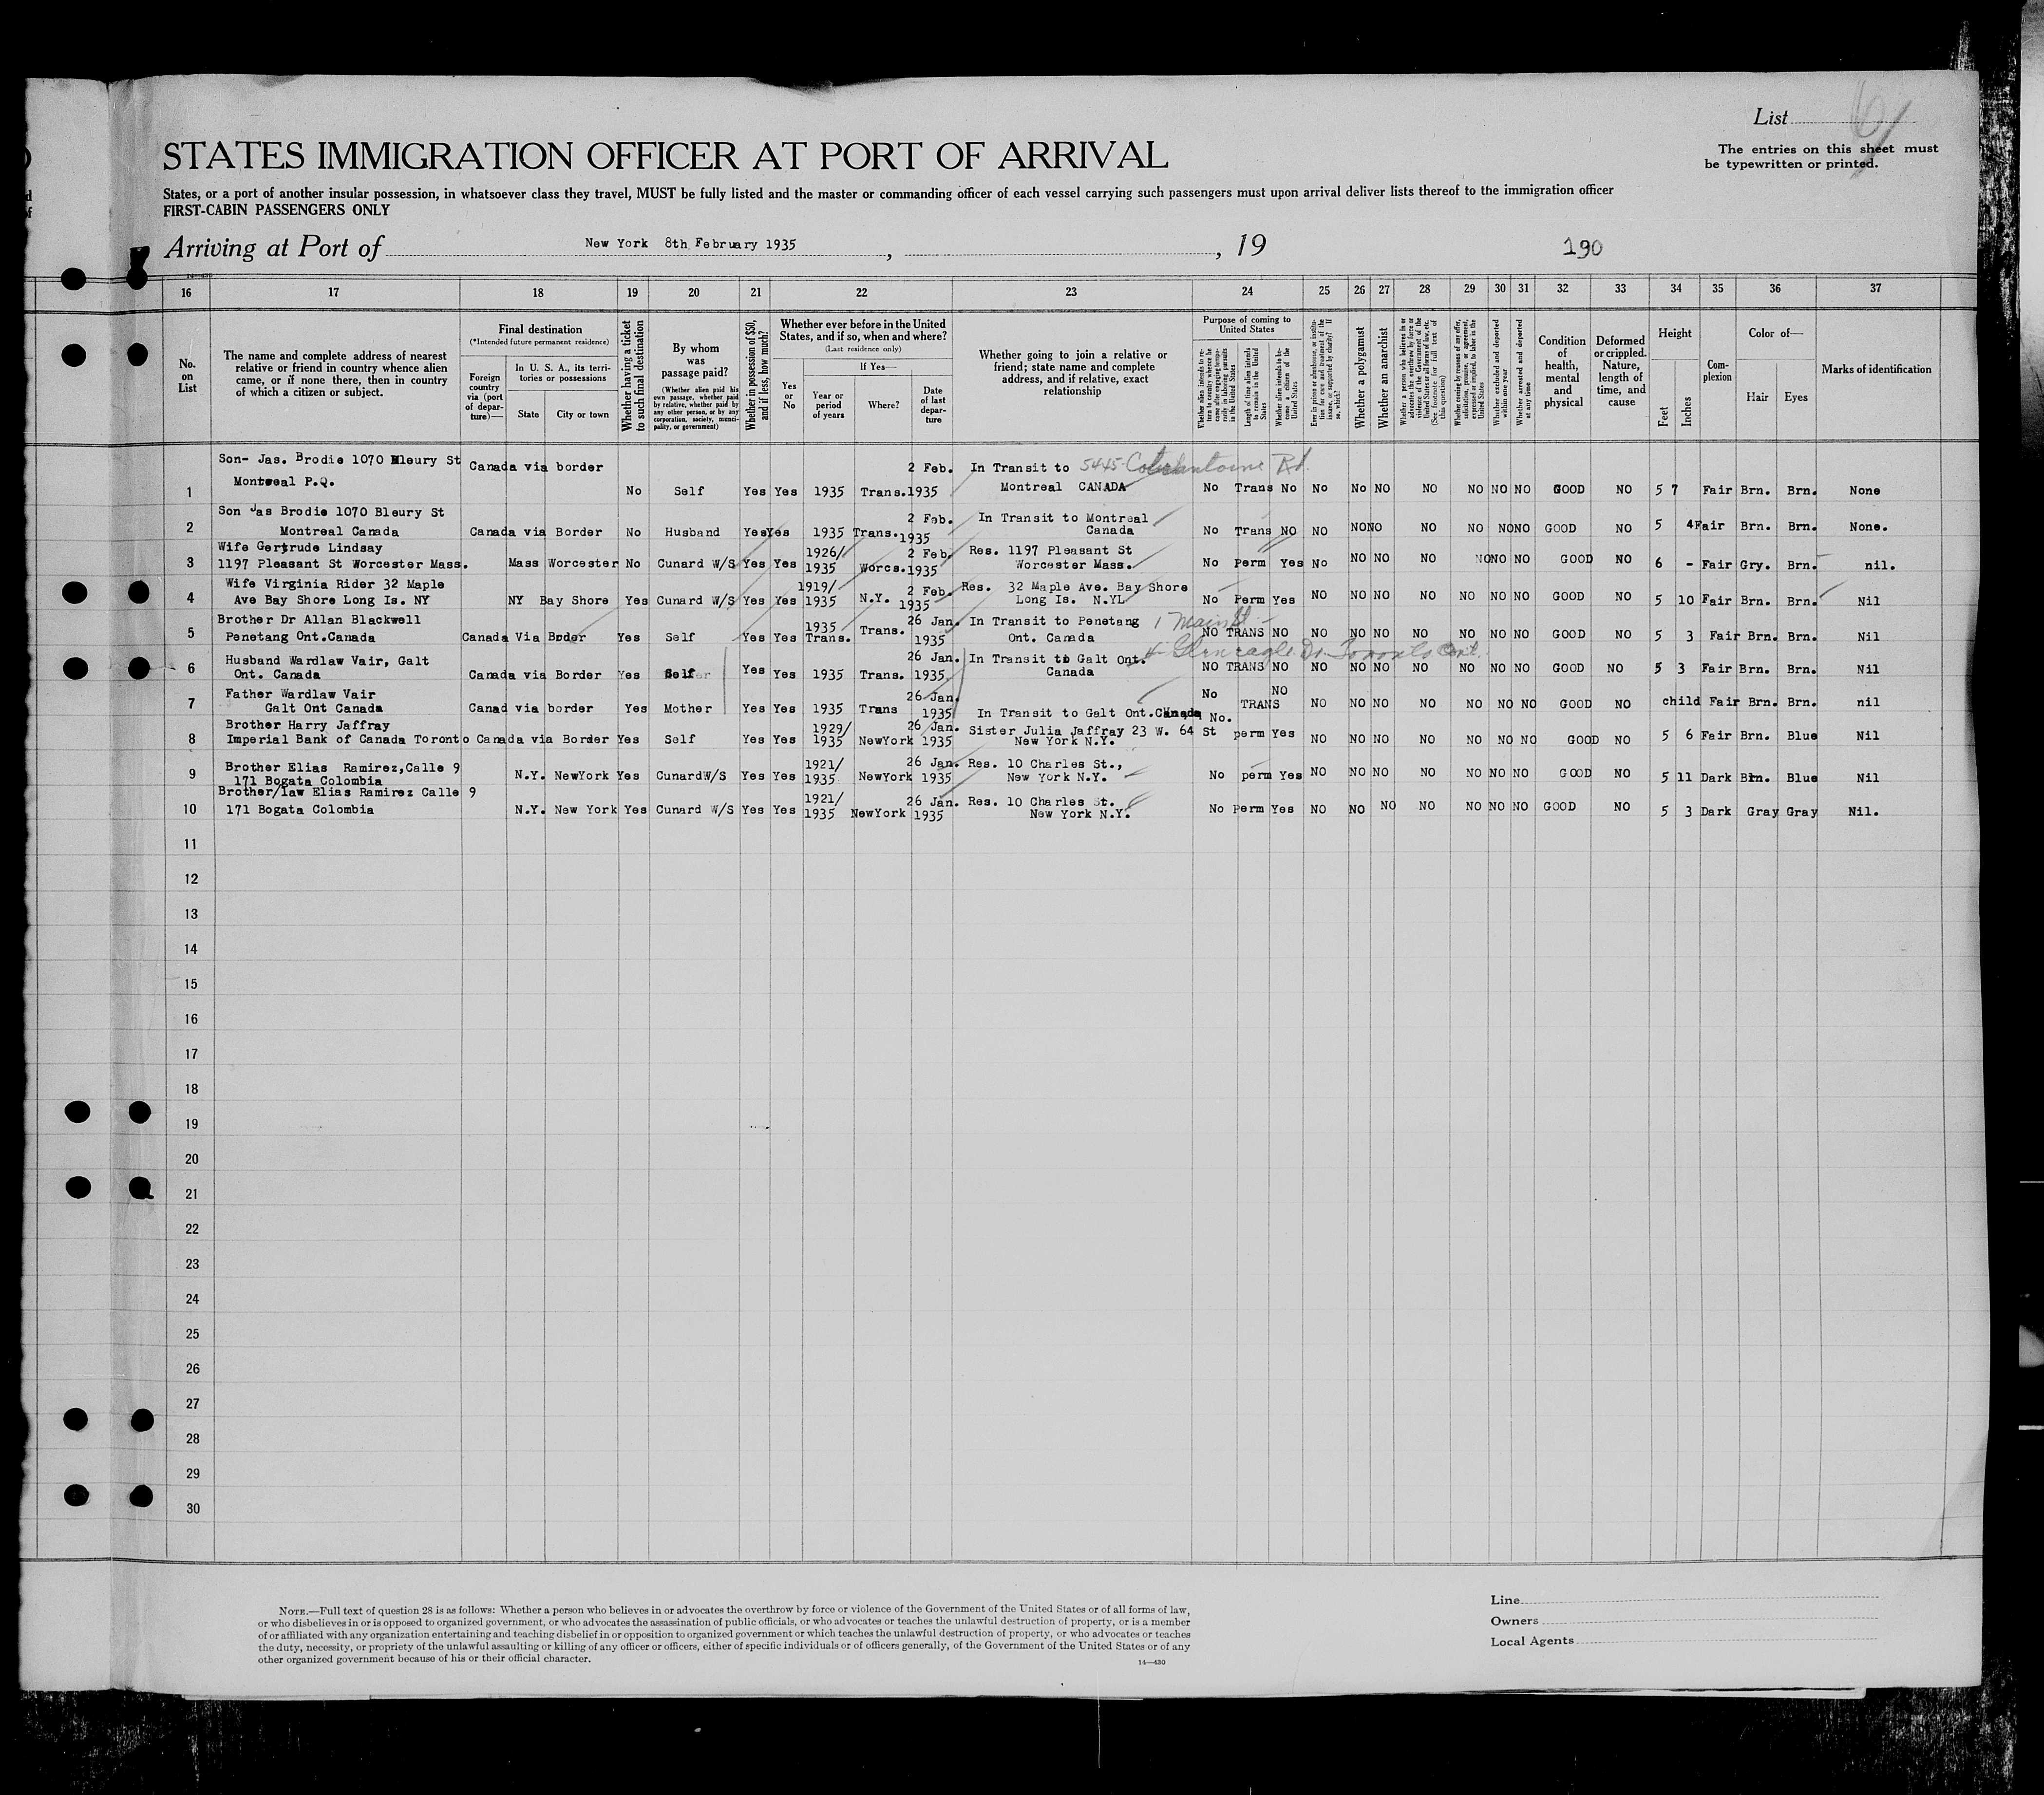 List 61
The entries on this sheet must
be typewritten or printed.
STATES IMMIGRATION OFFICER AT PORT OF ARRIVAL
States, or a port of another insular possession, in whatsoever class they travel, MUST be fully listed and the master or commanding officer of each vessel carrying such passengers must upon arrival deliver lists thereof to the immigration officer
FIRST-CABIN PASSENGERS ONLY
Arriving at Port of New York 8th February 1935, , 19
190
16 17 18 19 20 21 22 23 24 25 26 27 28 29 30 31 32 33 34 35 36 37
No. on List
The name and complete address of nearest
relative or friend in country whence alien
came, or if none there, then in country
of which a citizen or subject.
Final destination
(*Intended future permanent residence)
Foreign country via (port of departure)—
In U. S. A., its territories or possessions
State
City or town
Whether having a ticket to such final destination
By whom was passage paid?
(Whether alien paid his own passage, whether paid by relative, whether paid by any other person, or by any corporation, society, municipality, or government)
Whether in possession of $50, and if less, how much?
Whether ever before in the United States, and if so, when and where?
(Last residence only)
Yes or No
If Yes—
Year or period of years
Where?
Date of last departure
Whether going to join a relative or
friend; state name and complete
address, and if relative, exact
relationship
Purpose of coming to United States
Whether alien intends to return to country whence he came after engaging temporarily in laboring pursuits in the United States
Length of time alien intends to remain in the United States
Whether alien intends to become a citizen of the United States
Ever in prison or almshouse, or institution for care and treatment of the insane, or supported by charity? If so, which?
Whether a polygamist
Whether an anarchist
Whether a person who believes in or advocates the overthrow by force or violence of the Government of the United States or all forms of law, etc. (See footnote for full text of this question)
Whether coming by reasons of any offer, solicitation, promise, or agreement, expressed or implied, to labor in the United States
Whether excluded and deported within one year
Whether arrested and deported at any time
Condition of health, mental and physical
Deformed or crippled. Nature, length of time, and cause
Height
Feet
Inches
Complexion
Color of—
Hair
Eyes
Marks of identification
1 Son- Jas. Brodie 1070 Bleury St Montreal P.Q. Canada via border No Self Yes Yes 1935 Trans. 2 Feb. 1935 In Transit to 5445 Rd. Montreal CANADA No Trans No No No NO NO NO NO NO GOOD NO 5 7 Fair Brn. Brn. None
2 Son Jas Brodie 1070 Bleury St Montreal Canada Canada via Border No Husband Yes Yes 1935 Trans. 2 Feb. 1935 In Transit to Montreal Canada No Trans NO NO NO NO NO NO NO NO GOOD NO 5 4 Fair Brn. Brn. None.
3 Wife Gertrude Lindsay 1197 Pleasant St Worcester Mass. Mass Worcester No Cunard W/S Yes Yes 1926/ 1935 Worcs. 2 Feb. 1935 Res. 1197 Pleasant St Worcester Mass. No Perm Yes No NO NO NO NO NO NO GOOD NO 6 - Fair Gry. Brn. nil.
4 Wife Virginia Rider 32 Maple Ave Bay Shore Long Is. NY NY Bay Shore Yes Cunard W/S Yes Yes 1919/ 1935 N.Y. 2 Feb. 1935 Res. 32 Maple Ave. Bay Shore Long Is. N.YL No Perm Yes NO NO NO NO NO NO NO GOOD NO 5 10 Fair Brn. Brn. Nil
5 Brother Dr Allan Blackwell Penetang Ont.Canada Canada Via Brder Yes Self Yes Yes 1935 Trans. Trans. 26 Jan. 1935 In Transit to Penetang 1 Main St Ont. Canada NO TRANS NO NO NO NO NO NO NO NO GOOD NO 5 3 Fair Brn. Brn. Nil
6 Husband Wardlaw Vair, Galt Ont. Canada Canada via Border Yes Self Yes Yes 1935 Trans. 26 Jan. 1935 In Transit to Galt Ont. Canada 4 Gleneagle Dr. Toronto Ont. NO TRANS NO NO NO NO NO NO NO NO GOOD NO 5 3 Fair Brn. Brn. Nil
7 Father Wardlaw Vair Galt Ont Canada Canad via border Yes Mother Yes Yes 1935 Trans 26 Jan. 1935 In Transit to Galt Ont.Canada No TRANS NO NO NO NO NO NO NO NO GOOD NO child Fair Brn. Brn. nil
8 Brother Harry Jaffray Imperial Bank of Canada Toronto Canada via Border Yes Self Yes Yes 1929/ 1935 NewYork 26 Jan. 1935 Sister Julia Jaffray 23 W. 64 St New York N.Y. No. perm Yes NO NO NO NO NO NO NO GOOD NO 5 6 Fair Brn. Blue Nil
9 Brother Elias Ramirez,Calle 9 171 Bogata Colombia N.Y. NewYork Yes CunardW/S Yes Yes 1921/ 1935 NewYork 26 Jan. 1935 Res. 10 Charles St., New York N.Y. No perm Yes NO NO NO NO NO NO NO GOOD NO 5 11 Dark Brn. Blue Nil
10 Brother/law Elias Ramirez Calle 9 171 Bogata Colombia N.Y. New York Yes Cunard W/S Yes Yes 1921/ 1935 NewYork 26 Jan. 1935 Res. 10 Charles St. New York N.Y. No Perm Yes NO NO NO NO NO NO NO GOOD NO 5 3 Dark Gray Gray Nil.
11
12
13
14
15
16
17
18
19
20
21
22
23
24
25
26
27
28
29
30
NOTE.—Full text of question 28 is as follows: Whether a person who believes in or advocates the overthrow by force or violence of the Government of the United States or of all forms of law,
or who disbelieves in or is opposed to organized government, or who advocates the assassination of public officials, or who advocates or teaches the unlawful destruction of property, or is a member
of or affiliated with any organization entertaining and teaching disbelief in or opposition to organized government or which teaches the unlawful destruction of property, or who advocates or teaches
the duty, necessity, or propriety of the unlawful assaulting or killing of any officer or officers, either of specific individuals or of officers generally, of the Government of the United States or of any
other organized government because of his or their official character.
14—430
Line
Owners
Local Agents